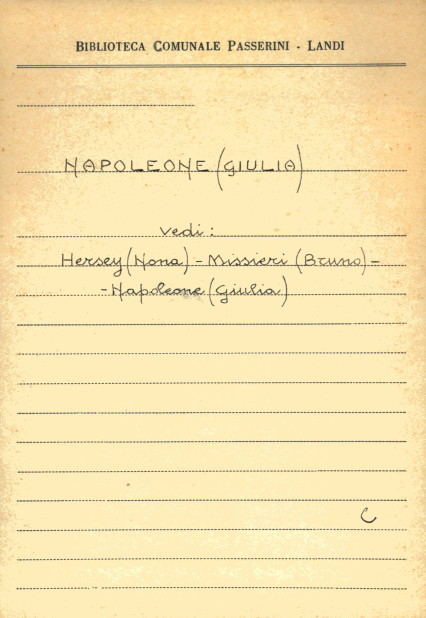 BIBLIOTECA COMUNALE PASSERINI - LANDI
NAPOLEONE (GIULIA)
Vedi:
Hersey (Nona) - Missieri (Bruno) -
- Napoleone (Giulia)
C